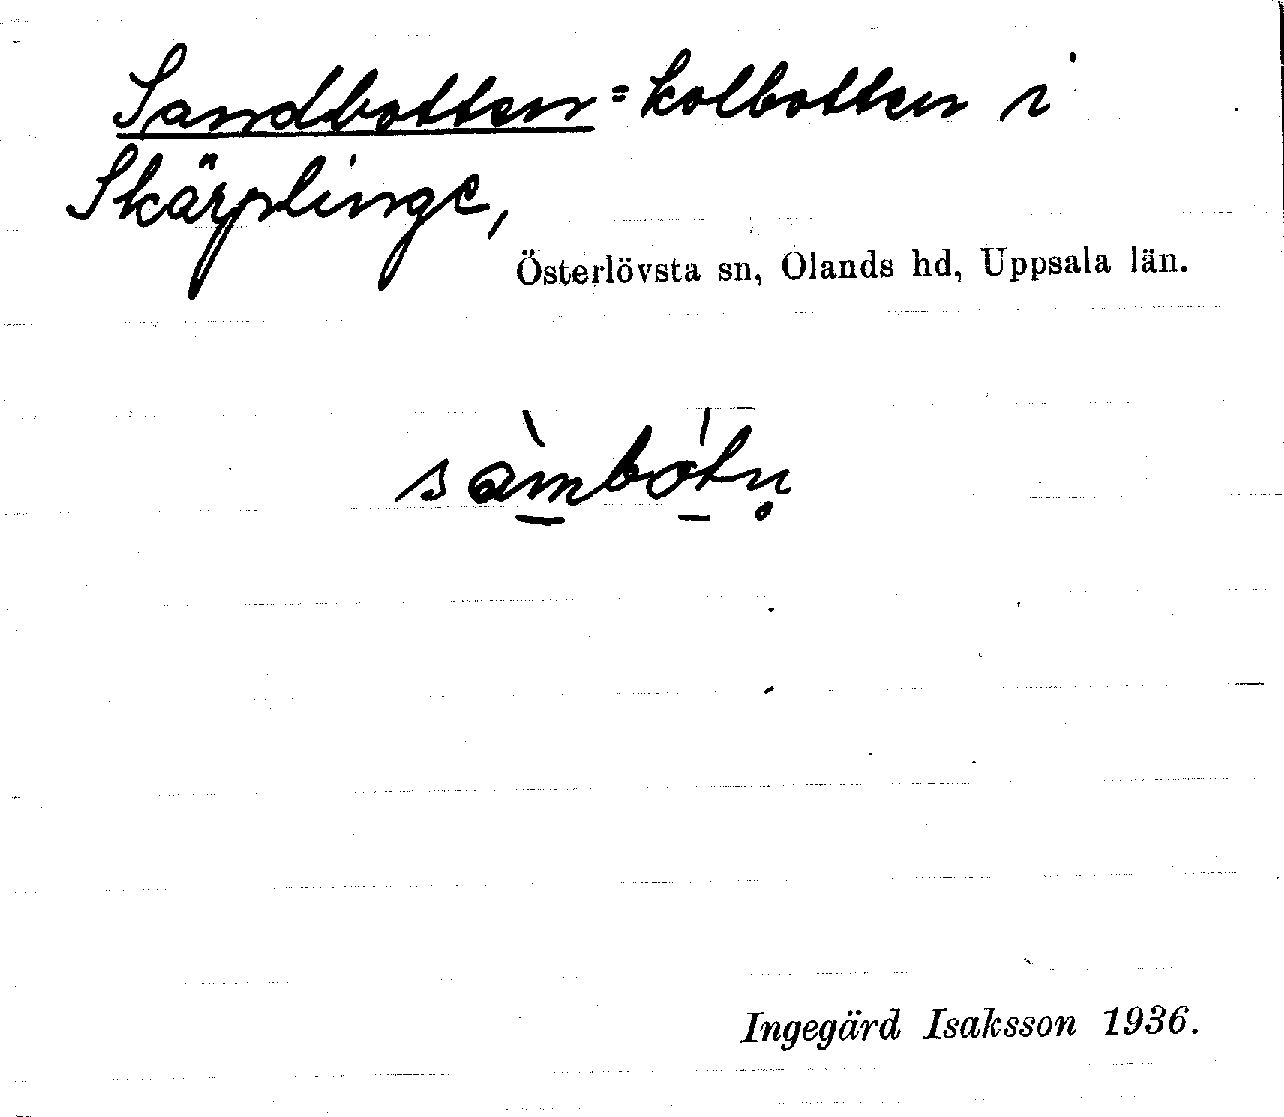 Sandbotten = kolbotten i
Skärplinge,
Österlövsta sn, Olands hd, Uppsala län.
sàmbótn̥
Ingegärd Isaksson 1936.